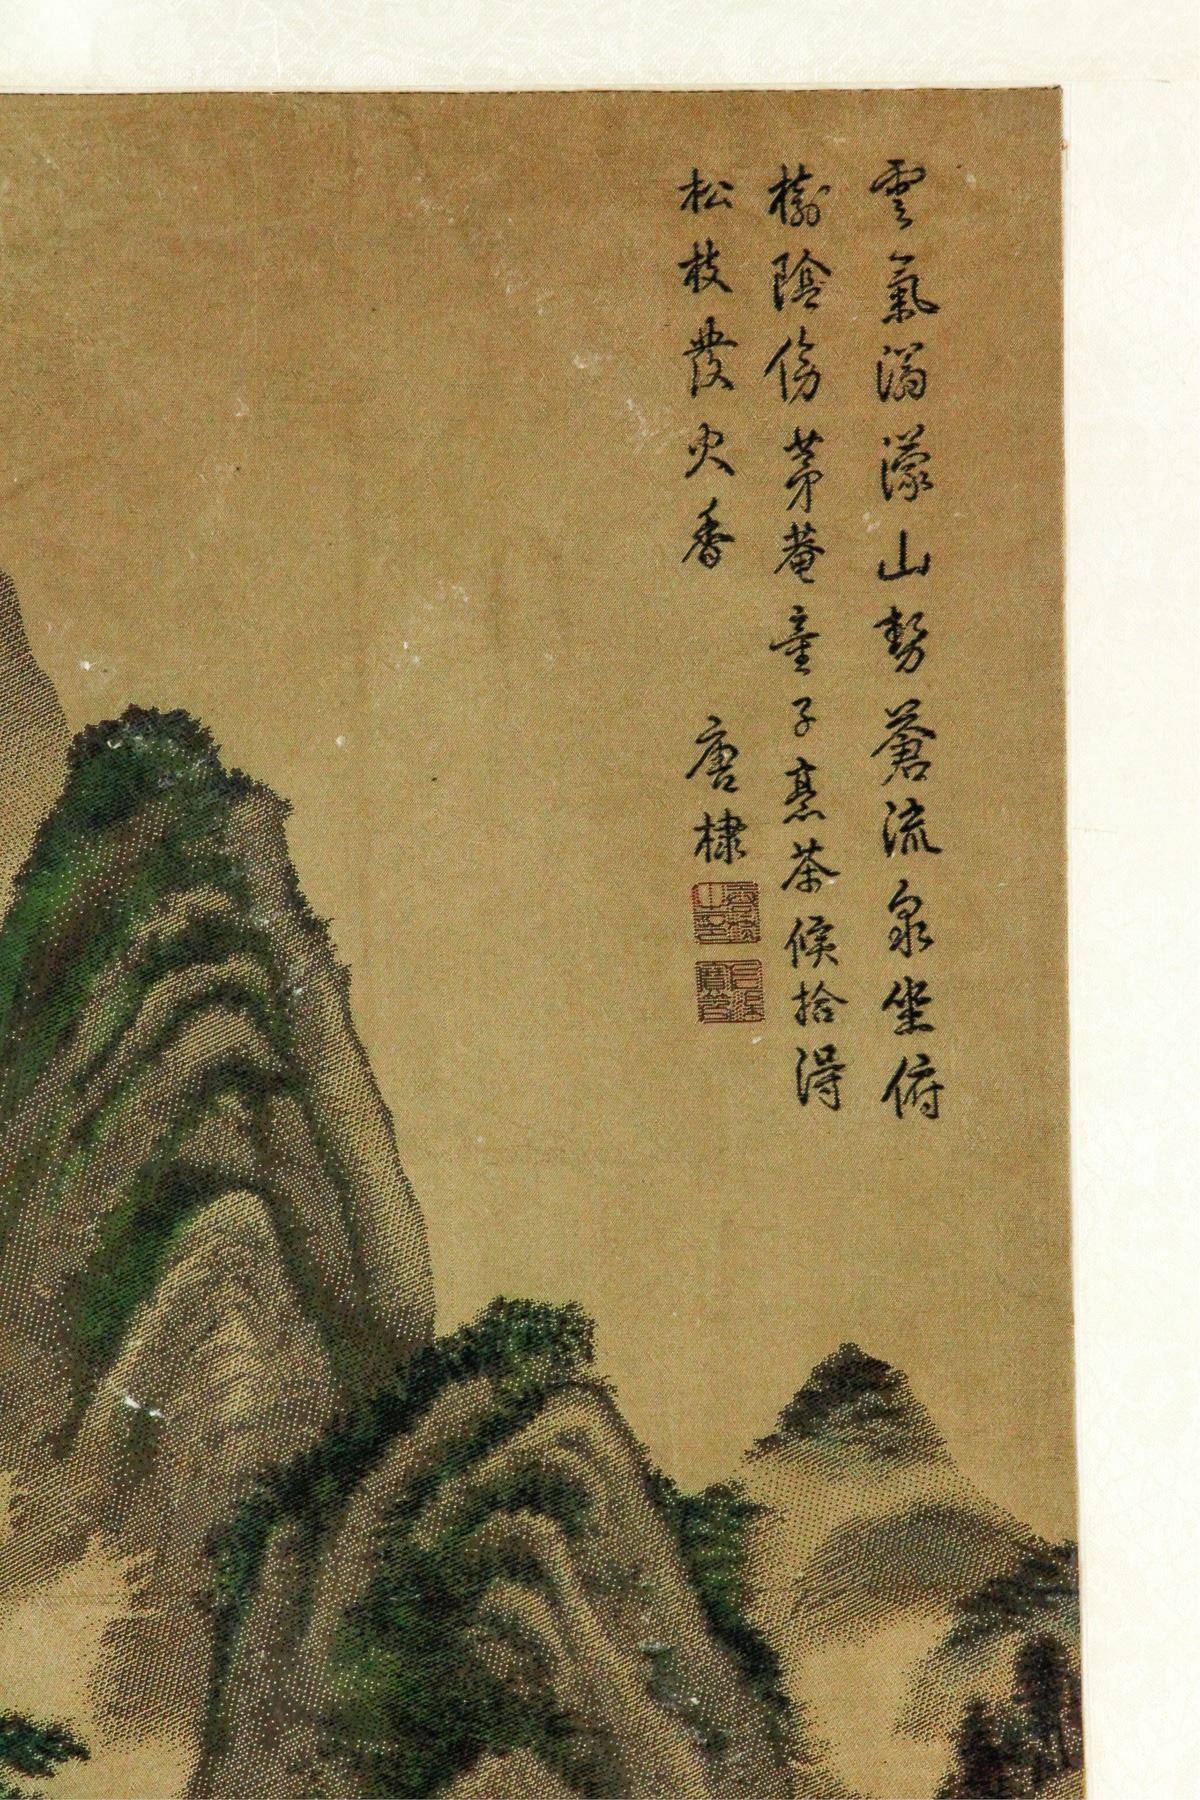 雲氣滃濛山勢蒼流泉坐俯
樹陰傍茅菴童子熹茶候拾得
松枝發火香
唐棣